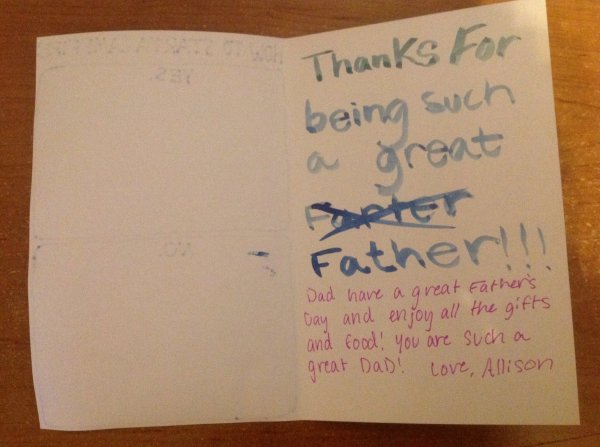 HOW TO START A
YES.
NO.
Thanks For
being such
a great
Farter
Father!!!
Dad have a great Father's
Day and enjoy all the gifts
and food! You are such a
great DaD! Love, Allison